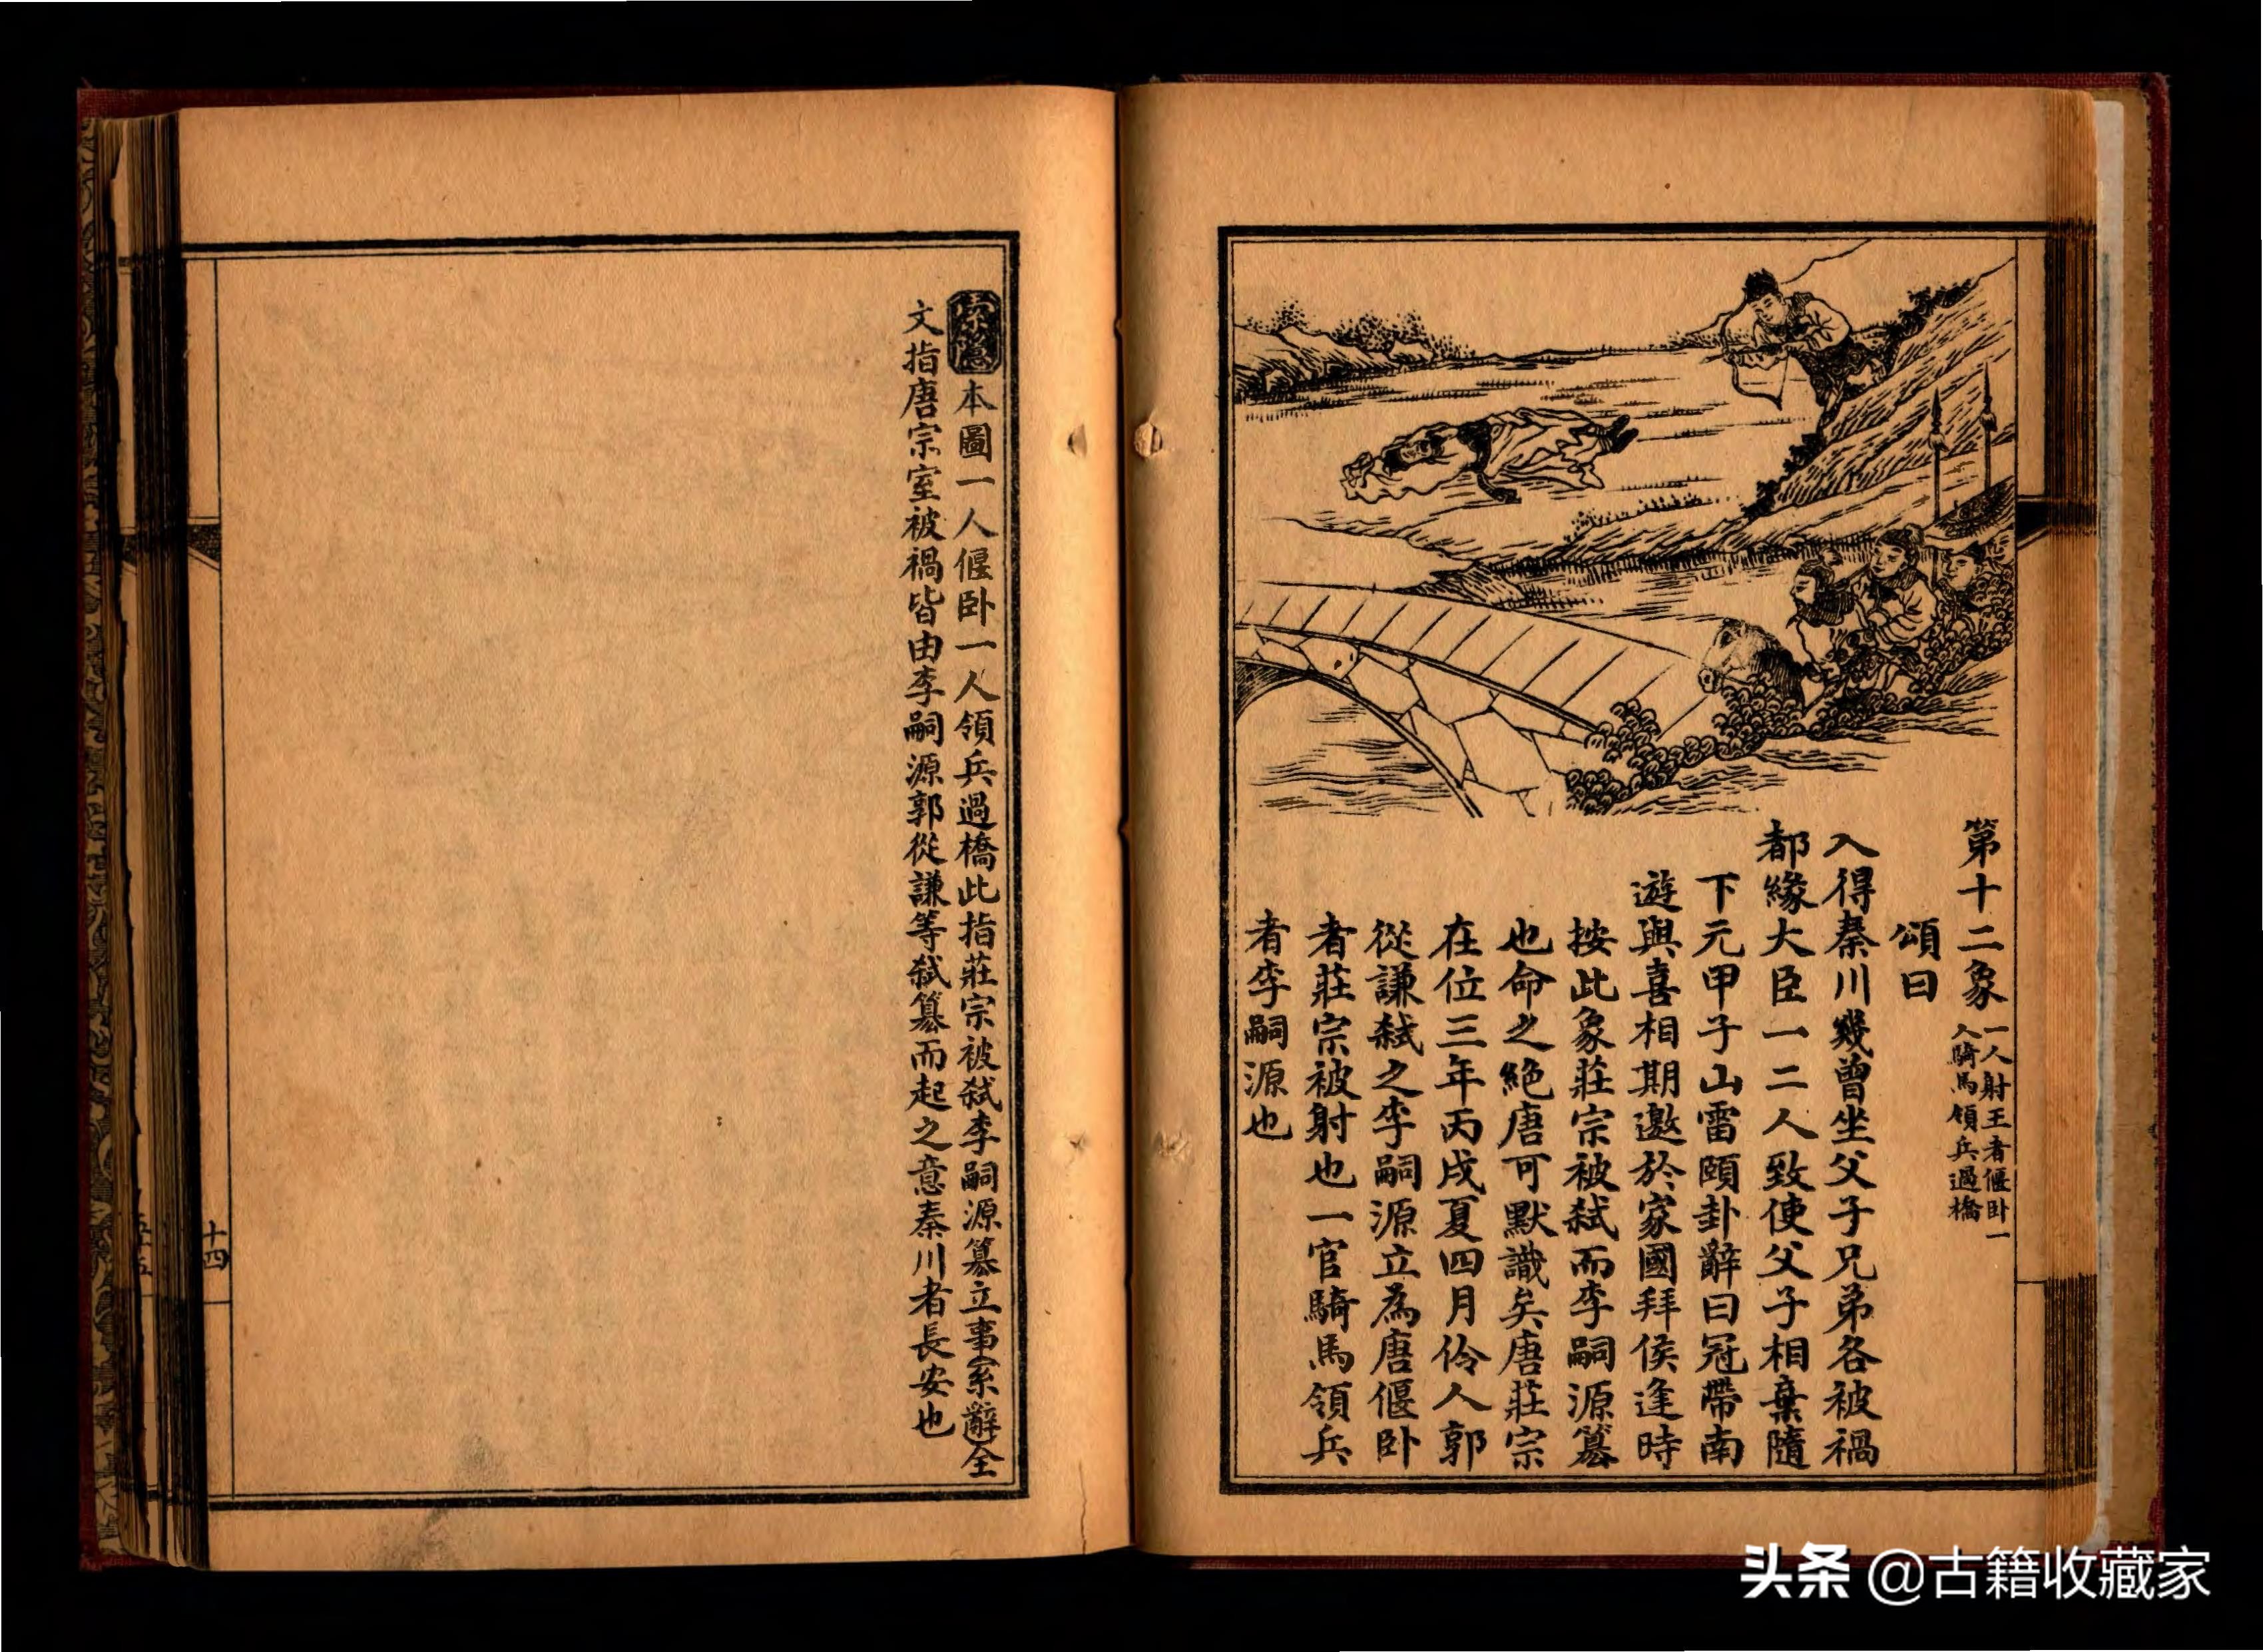 第十二象
一人射王者偃卧一
人騎馬領兵過橋
頌曰
入得秦川幾曾坐父子兄弟各被禍
都緣大臣一二人致使父子相棄隨
下元甲子山雷頤卦辭曰冠帶南
遊與喜相期邀於家國拜侯逢時
按此象莊宗被弒而李嗣源篡
也命之絕唐可默識矣唐莊宗
在位三年丙戌夏四月伶人郭
從謙弒之李嗣源立為唐偃卧
者莊宗被射也一官騎馬領兵
者李嗣源也
索隱本圖一人偃卧一人領兵過橋此指莊宗被弒李嗣源篡立事繇辭全
文指唐宗室被禍皆由李嗣源郭從謙等弒篡而起之意秦川者長安也
十四
头条 @古籍收藏家